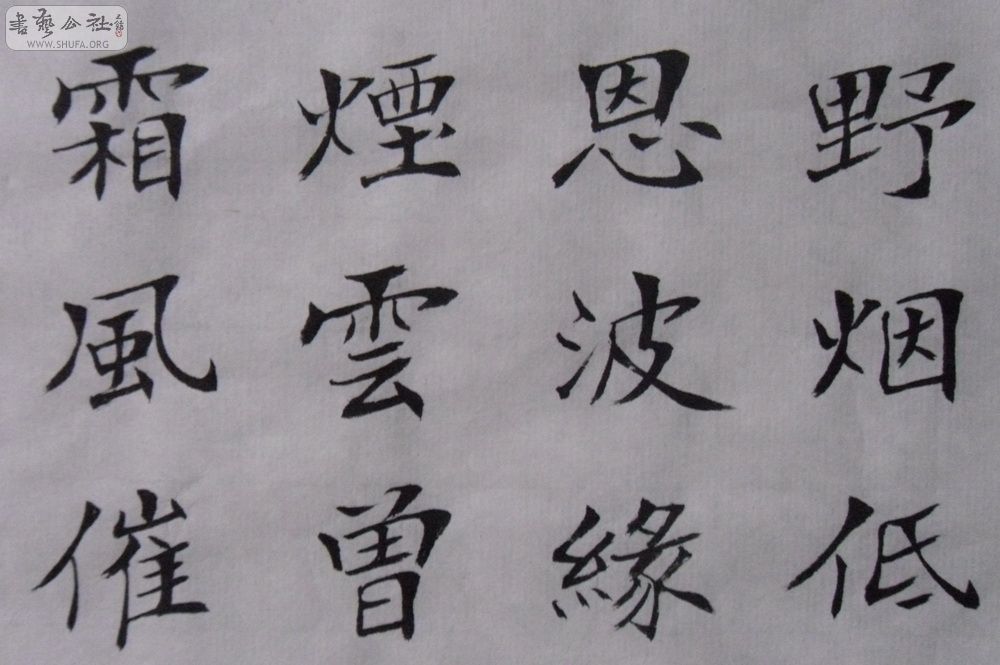 書藝公社
WWW.SHUFA.ORG
野烟低
恩波緣
煙雲曾
霜風催